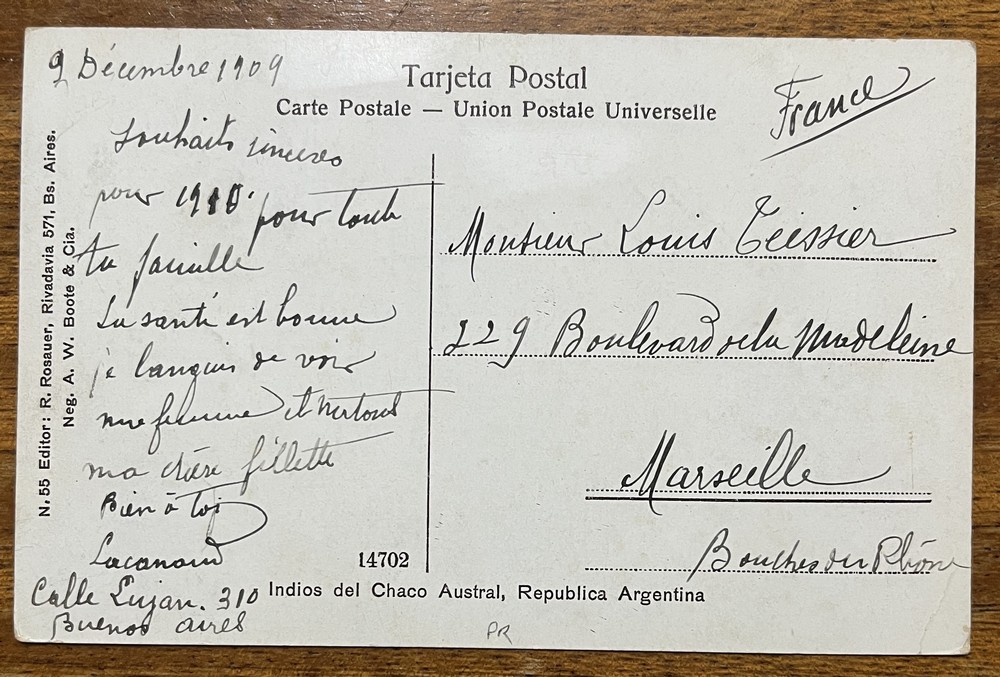 9 Décembre 1909
Tarjeta Postal
Carte Postale — Union Postale Universelle
France
Souhaits sincères
pour 1910 pour toute
ta famille
La santé est bonne
je languis de voir
ma femme et surtout
ma chère fillette
Bien à toi
Lacanaud
Calle Lujan. 310
Buenos aires
Monsieur Louis Teissier
229 Boulevard de la Madeleine
Marseille
Bouches du Rhône
14702
Indios del Chaco Austral, Republica Argentina
N. 55 Editor: R. Rosauer, Rivadavia 571, Bs. Aires.
Neg. A. W. Boote & Cia.
PR